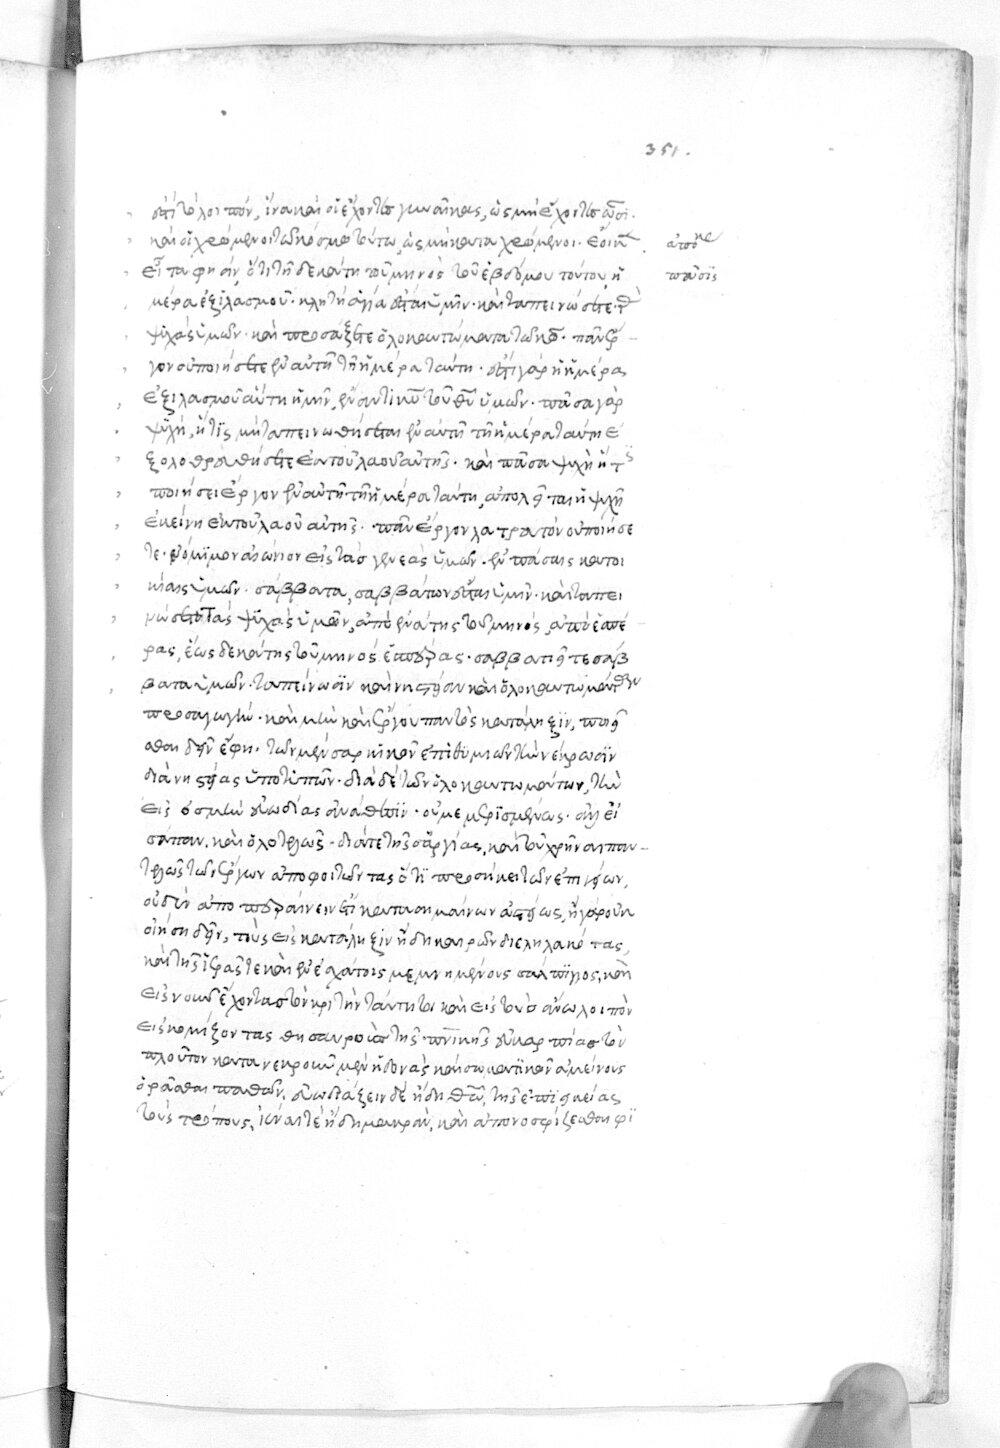 351.
ἐστὶ τὸ λοιπὸν, ἵνα καὶ οἱ ἔχοντες γυναῖκας, ὡς μὴ ἔχοντες ὦσι.
καὶ οἱ χρώμενοι τῷ κόσμῳ τούτῳ, ὡς μὴ καταχρώμενοι.
εἶτα φησὶν, ὅτι τῇ δεκάτῃ τοῦ μηνὸς τοῦ ἑβδόμου τούτου, ἡ
μέρα ἐξιλασμοῦ. κλητὴ ἁγία ἔσται ὑμῖν. καὶ ταπεινώσετε τὰς
ψυχὰς ὑμῶν. καὶ προσάξετε ὁλοκαυτώματα τῷ κῶ. πᾶν ἔρ
γον οὐ ποιήσετε ἐν αὐτῇ τῇ ἡμέρα ταύτη. ἐστὶ γὰρ ἡ ἡμέρας
ἐξιλασμοῦ αὕτη ἡμῖν, ἔναντι κυ τοῦ θυ ὑμῶν. πᾶσα γὰρ
ψυχὴ, ἥτις μὴ ταπεινωθήσεται ἐν αὐτῇ τῇ ἡμέρα ταύτη ἐ
ξολοθρευθήσεται ἐκ τοῦ λαοῦ αὐτῆς. καὶ πᾶσα ψυχὴ ἥτις
ποιήσει ἔργον ἐν αὐτῇ τῇ ἡμέρα ταύτη, ἀπολεῖται ἡ ψυχὴ
ἐκείνη ἐκ τοῦ λαοῦ αὐτῆς. πᾶν ἔργον λατρευτὸν οὐ ποιήσε
τε. νόμιμον αἰώνιον εἰς τὰς γενεὰς ὑμῶν. ἐν πάσαις κατοι
κίαις ὑμῶν. σάββατα σαββάτων ἔσται ὑμῖν. καὶ ταπει
νώσετε τὰς ψυχὰς ὑμῶν, ἀπὸ ἐνάτης τοῦ μηνὸς, ἀπὸ ἑσπέ
ρας, ἕως δεκάτης τοῦ μηνὸς ἑσπέρας. σαββατιεῖτε σάβ
βατα ὑμῶν. ταπείνωσιν καὶ νηστείαν καὶ ὁλοκαυτωμάτων
προσαγωγὴν. καὶ μὴν καὶ ἔργου παντὸς κατάληξιν, ποιεῖ
σθαι δεῖν ἔφη. τῶν μὲν σαρκικῶν ἐπιθυμιῶν τὴν νέκρωσιν
διὰ νηστείας ὑποτυπῶν. διὰ δὲ τῶν ὁλοκαυτωμάτων, τὴν
εἰς ὀσμὴν εὐωδίας ἀνάθεσιν. οὐ μεμερισμένως. ἀλλ' εἰ
σάπαν. καὶ ὁλοτελῶς. διὰ τε τῆς ἀργίας, καὶ τοῦ χρῆναι παν
τελῶς τῶν ἔργων ἀποφοιτῶντας ὅτι προσήκει τῶν ἐπιγείων,
οἴησι δεῖν, τοὺς εἰς κατάληξιν ἤδη καιρῶν διεληλακότας,
καὶ τῆς ἱερᾶς τε καὶ ἐν ἐσχάτοις μεμνημένους σάλπιγγος, καὶ
εἰς νοῦν ἔχοντας τὸν κριτὴν
εἰσκομίζοντας θησαυροὺς τῆς πνικῆς εὐκαρπίας τὸν
πλοῦτον κατανεκροῦν μὲν ἡδονὰς καὶ σωματικῶν ἀμείνους
ὁρᾶσθαι παθῶν. εὐωδιάζειν δὲ ἤδη θῶ, τῆς ἐπιεικείας
τοὺς τρόπους, ἰέναι τε ἤδη μακρὰν, καὶ ἀπονοσφίζεσθαι φι